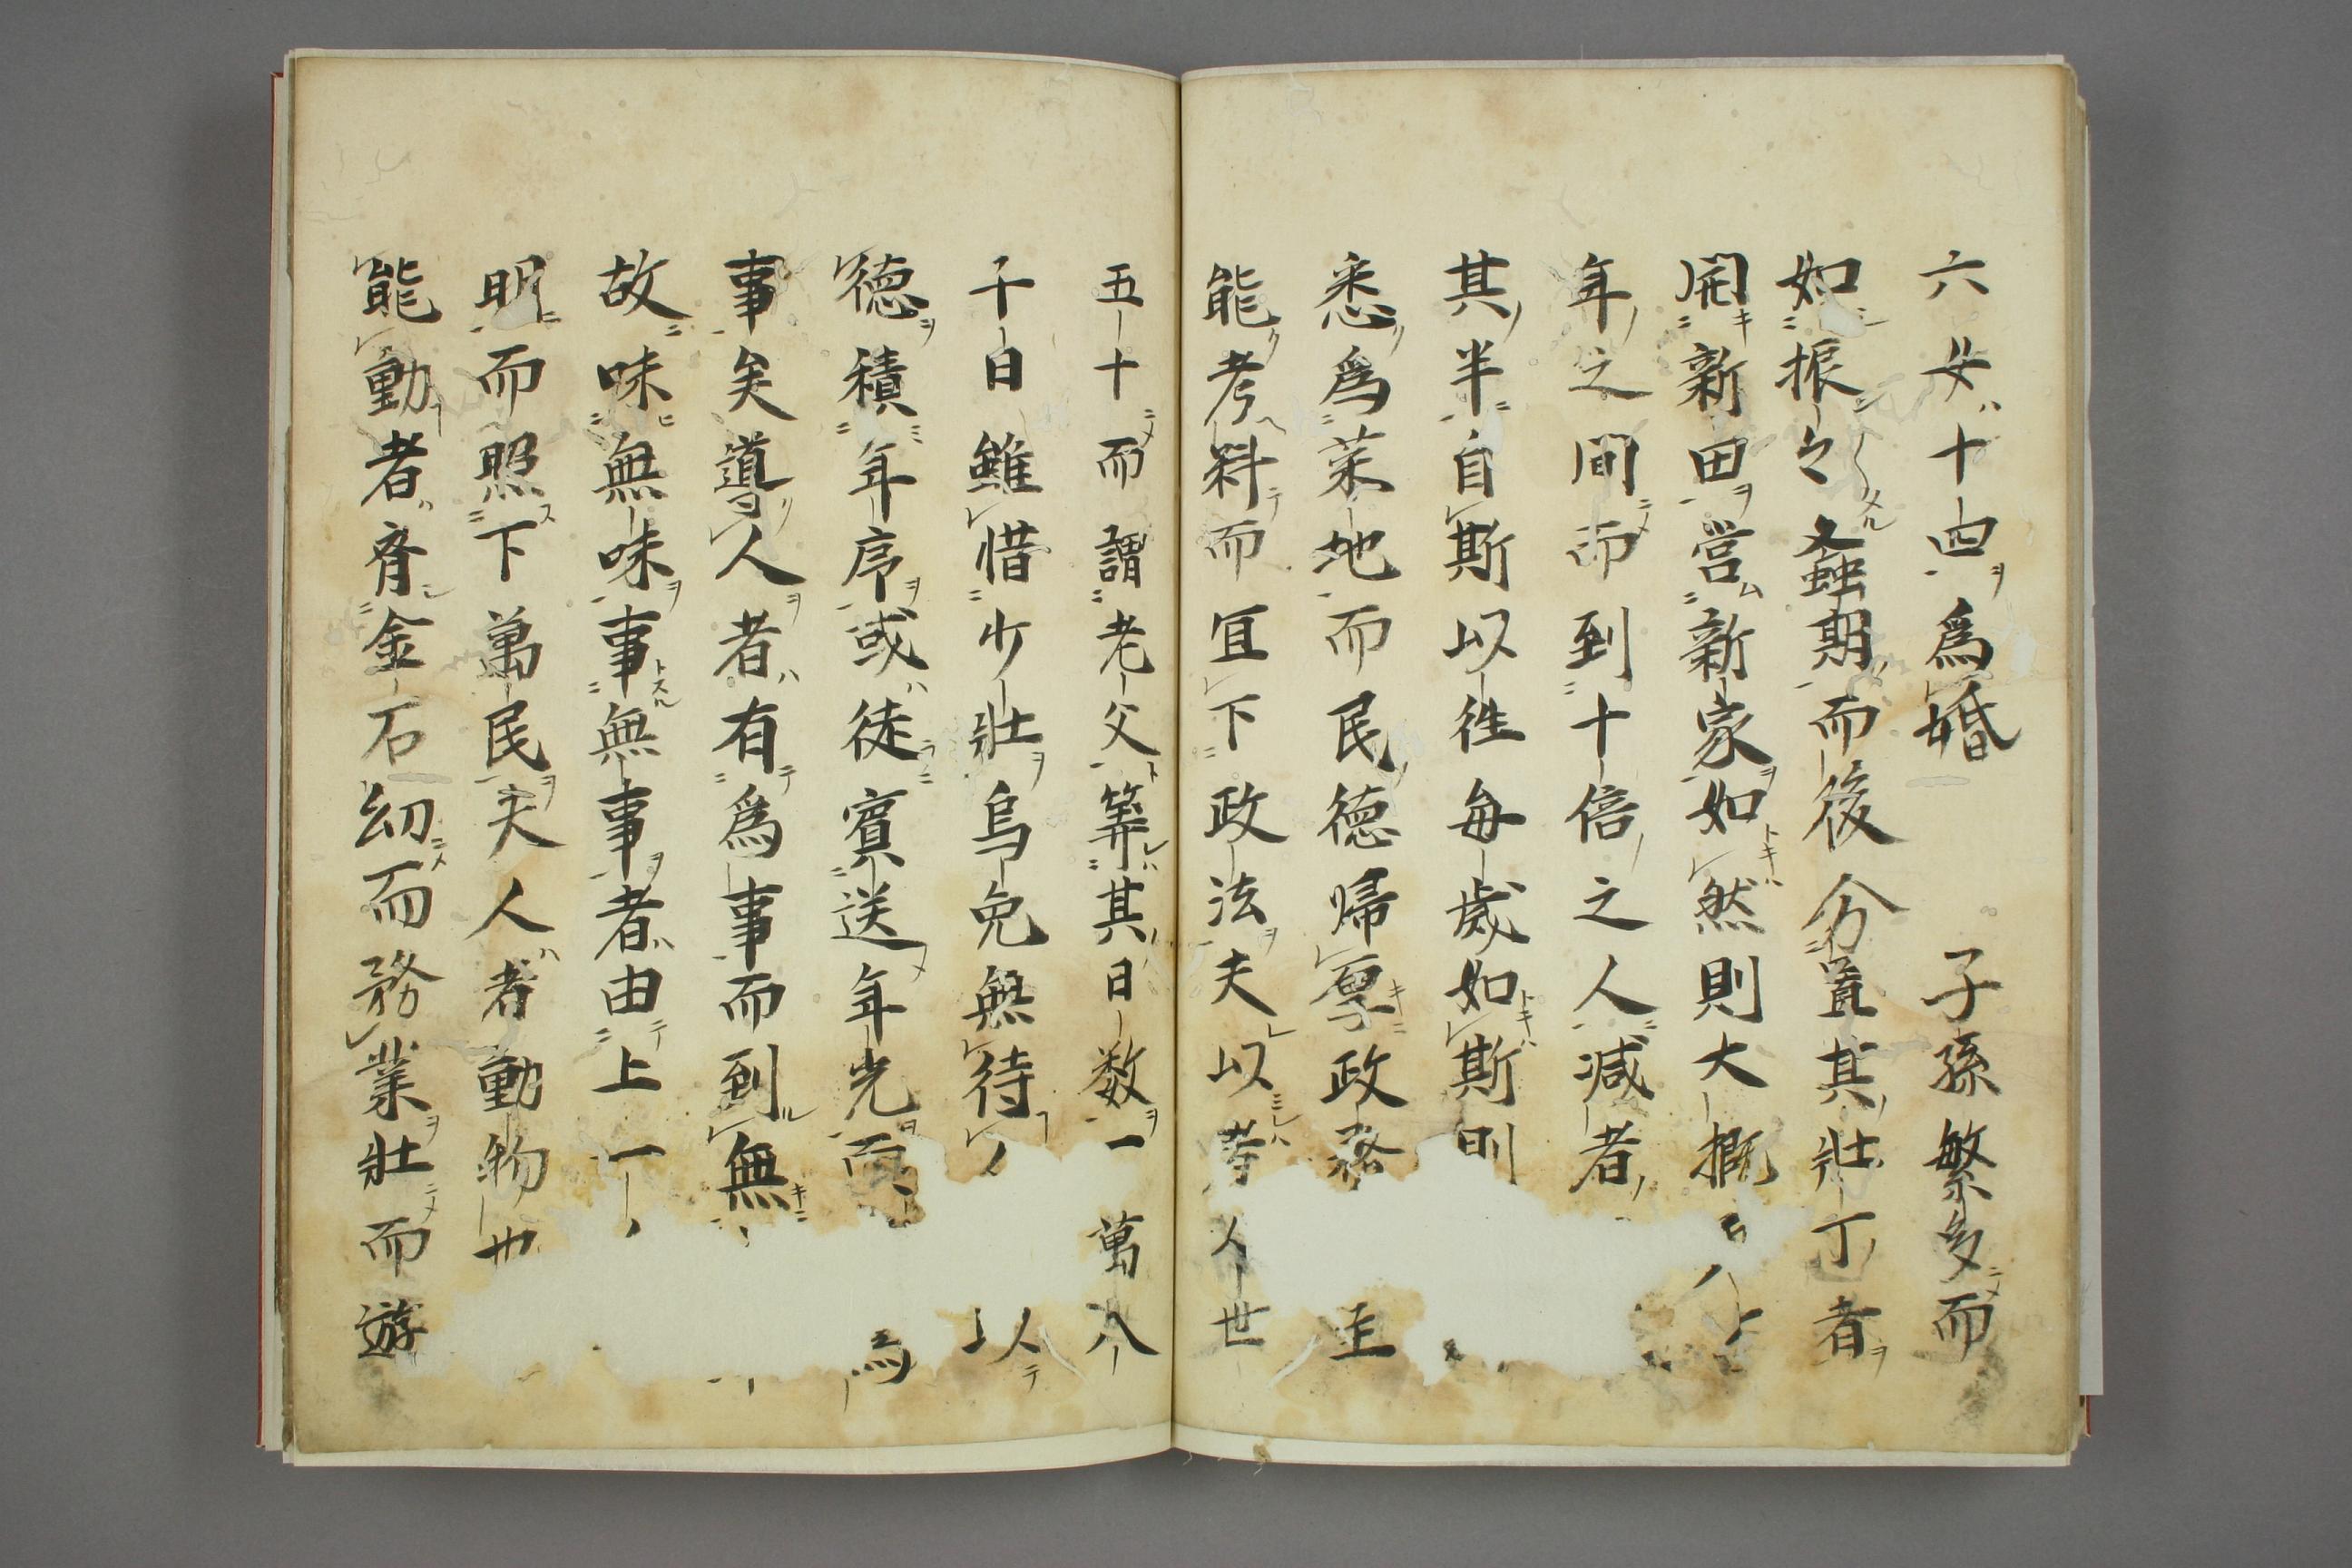 六女十四為婚　子孫繁多而
如振々螽期而後分置其壯丁者
開新田営新家如然則大概
年之間而到十倍之人減者
其半自斯以徃毎歳如斯則
悉為莱地而民徳帰厚政
能考料而宜下政法夫以人世
五十而謂老父筭其日数一萬八
千日雖惜少壯烏免無待以
徳積年序或徒賓送年光而為
事矣導人者有為事而到無
故味無味事無事者由上
明而照下萬民夫人者動物也
能動者脊金石幼而務業壯而遊